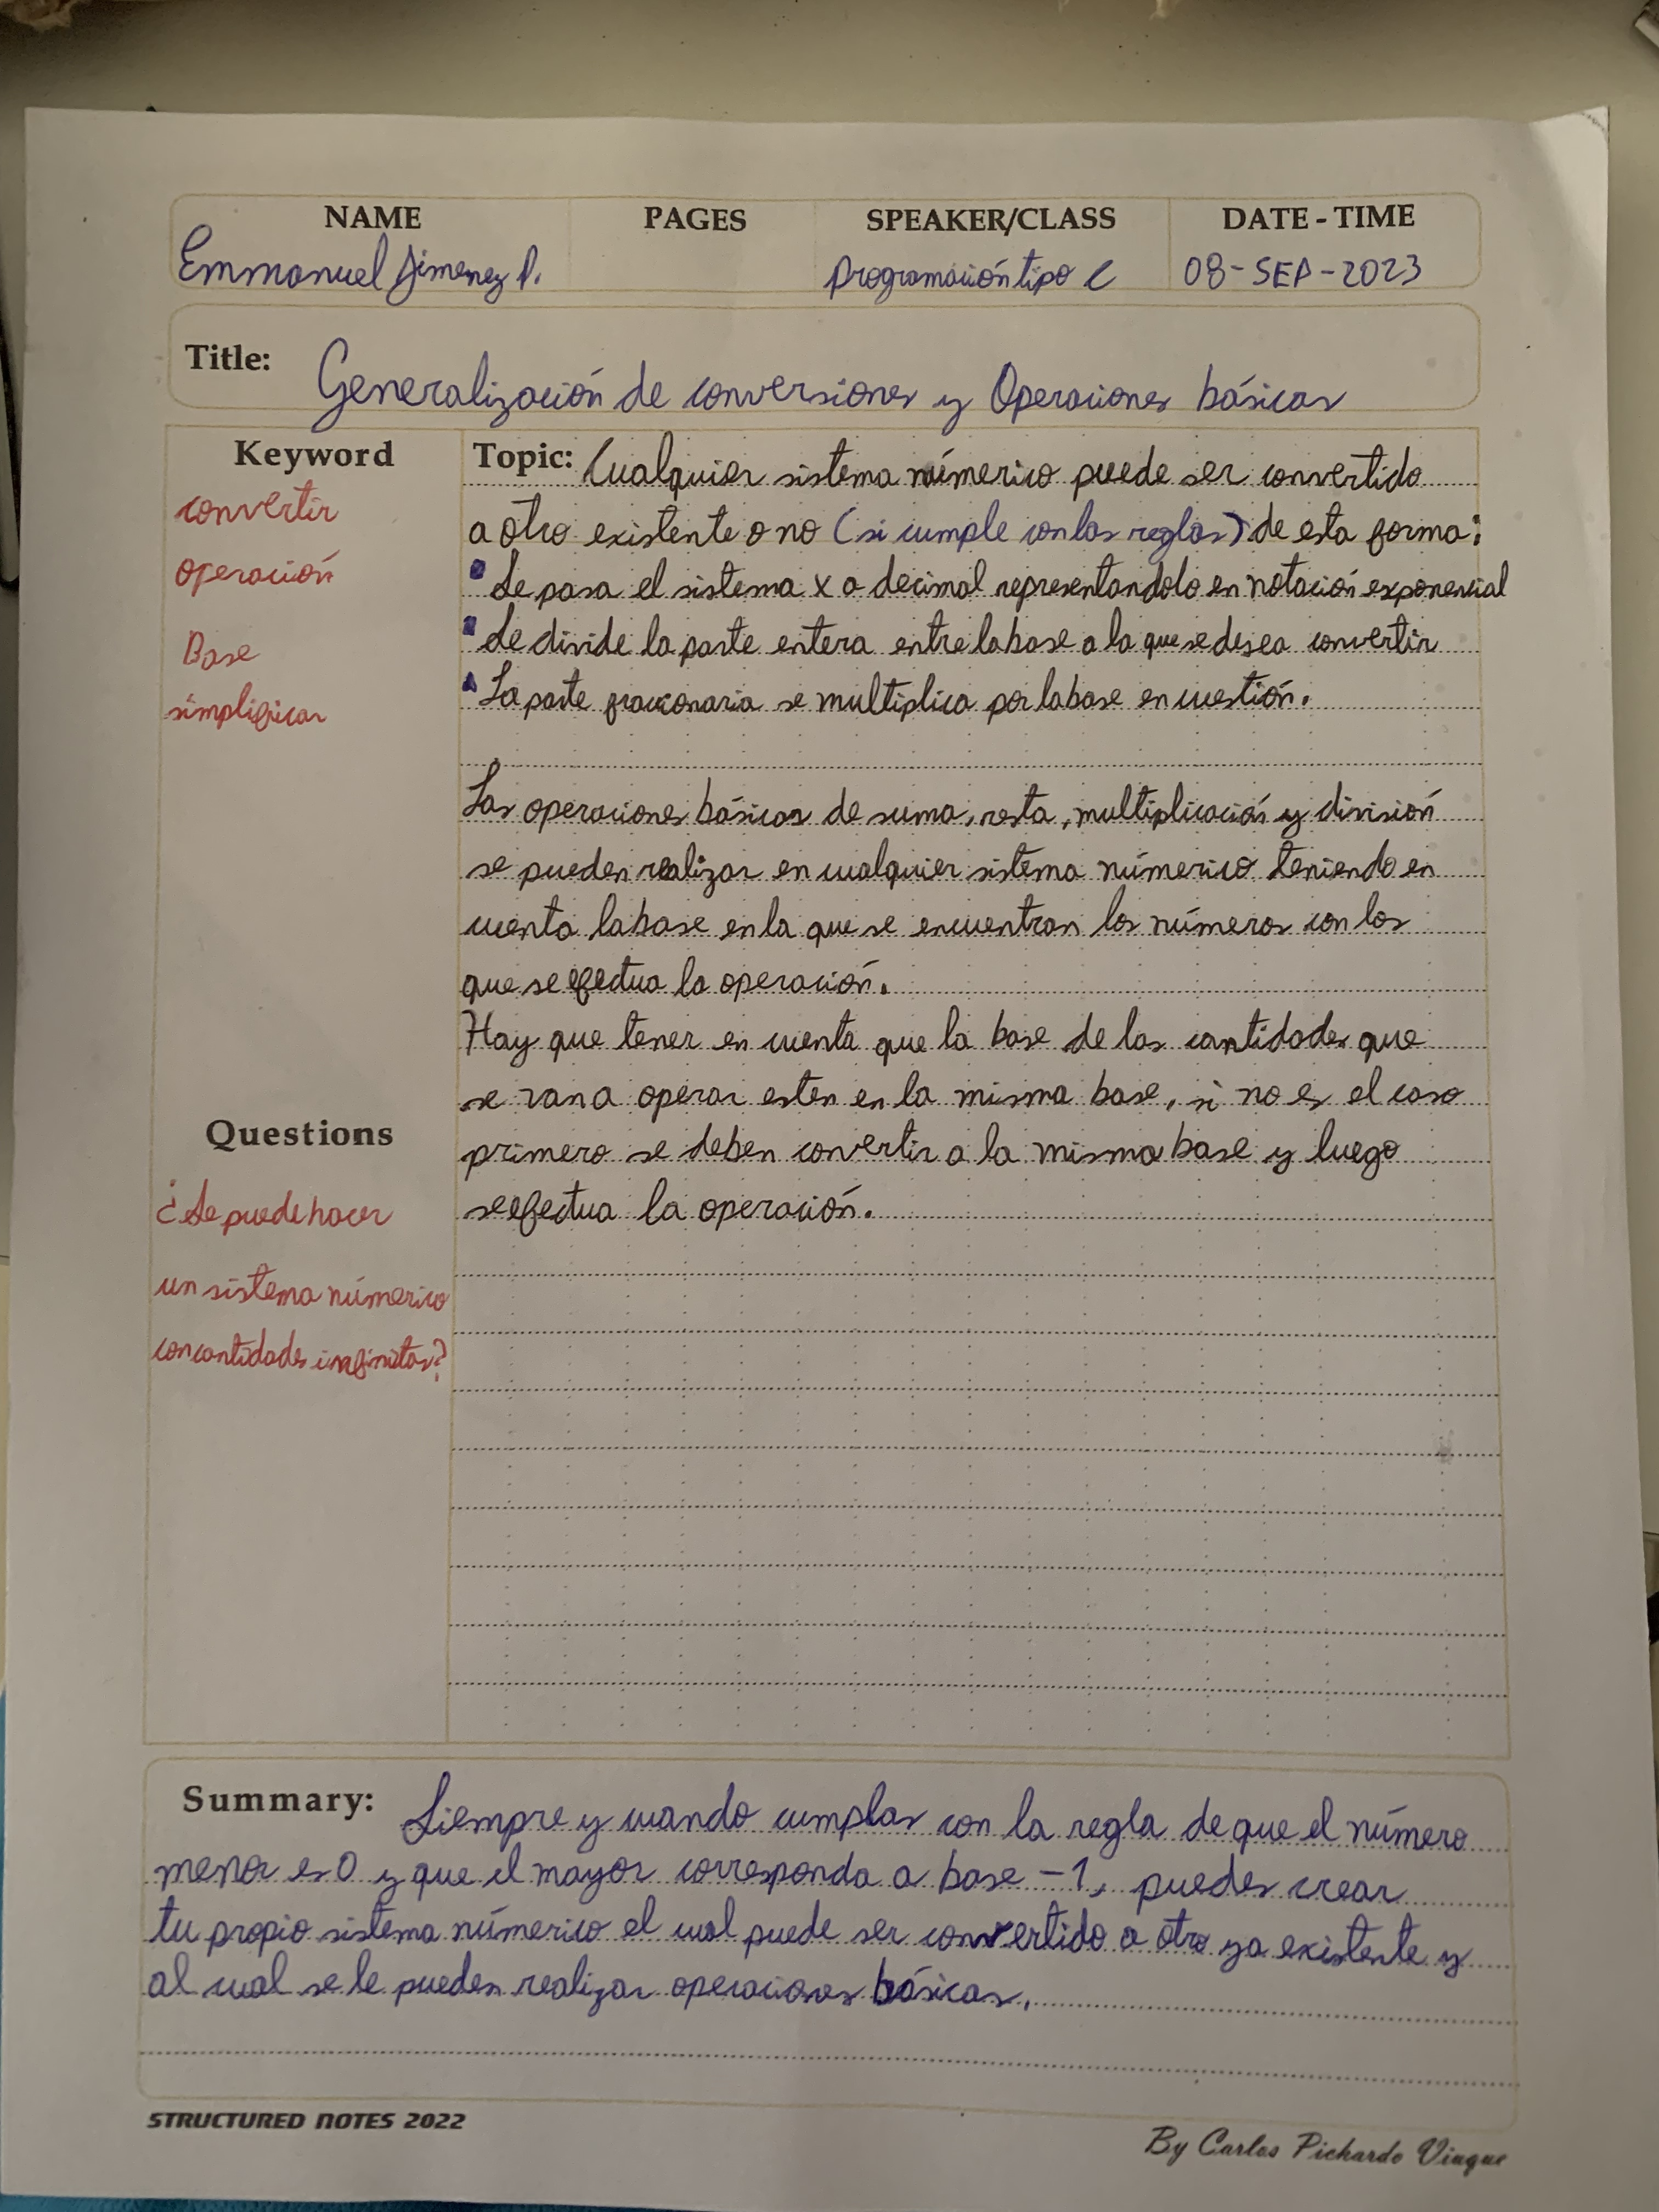 NAME PAGES SPEAKER/CLASS DATE - TIME
Emmanuel Jimenez P. Programación tipo C 08-SEP-2023
Title: Generalización de conversiones y Operaciones básicas
Keyword
convertir
operación
Base
simplificar
Topic: Cualquier sistema númerico puede ser convertido
a otro existente o no (si cumple con las reglas) de esta forma:
Se pasa el sistema x a decimal representandolo en notación exponencial
Se divide la parte entera entre la base a la que se desea convertir
La parte fraccionaria se multiplica por la base en cuestión.
Las operaciones básicas de suma, resta, multiplicación y división
se pueden realizar en cualquier sistema númerico teniendo en
cuenta la base en la que se encuentran los números con los
que se efectua la operación.
Hay que tener en cuenta que la base de las cantidades que
se van a operar esten en la misma base, si no es el caso
primero se deben convertir a la misma base y luego
se efectua la operación.
Questions
¿Se puede hacer
un sistema númerico
con cantidades infinitas?
Summary: Siempre y cuando cumplas con la regla de que el número
menor es 0 y que el mayor corresponda a base -1, puedes crear
tu propio sistema númerico el cual puede ser convertido a otro ya existente y
al cual se le pueden realizar operaciones básicas.
STRUCTURED NOTES 2022
By Carlos Pichardo Viuque